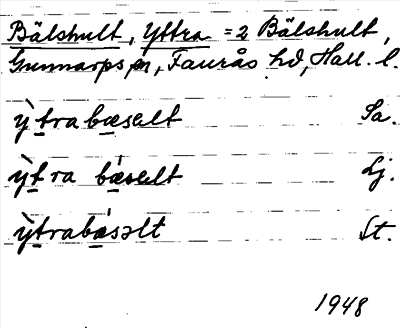 Bälshult, Yttra = 2 Bälshult,
Gunnarps sn, Faurås hd, Hall. l.
ỳtra bæselt Sa.
ỳtra bǽselt Lj.
ỳtrabǽsəlt St.
1948